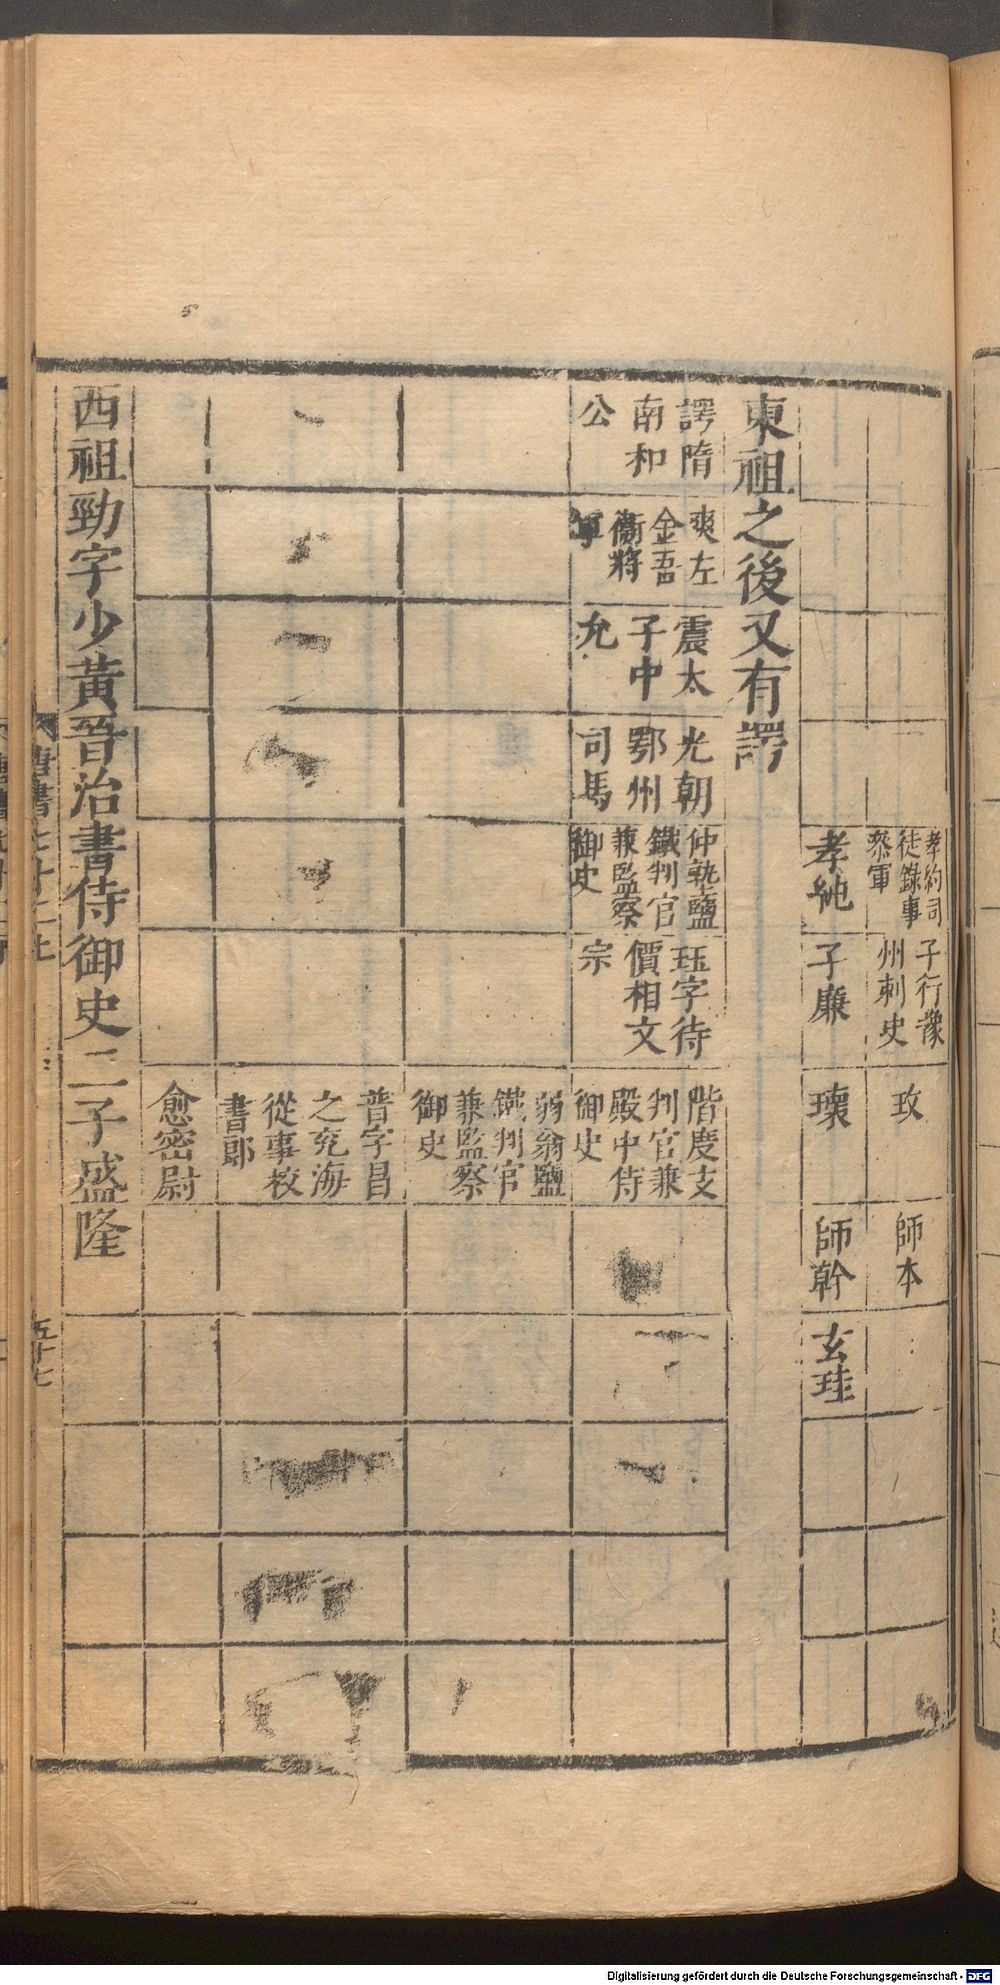 孝約司
徒錄事
叅軍
子行豫
州刺史
玫
師本
孝純
子廉
瓌
師幹
玄珪
東祖之後又有諤
諤隋
南和
公
爽左
金吾
衞將
軍
震太
子中
允
光朝
鄂州
司馬
仲孰鹽
鐵判官
兼監察
御史
珏字待
價相文
宗
階度支
判官兼
殿中侍
御史
弱翁鹽
鐵判官
兼監察
御史
普字昌
之兖海
從事校
書郎
愈密尉
西祖勁字少黃晉治書侍御史二子盛隆
唐書七十二上
五十七
Digitalisierung gefördert durch die Deutsche Forschungsgemeinschaft - DFG